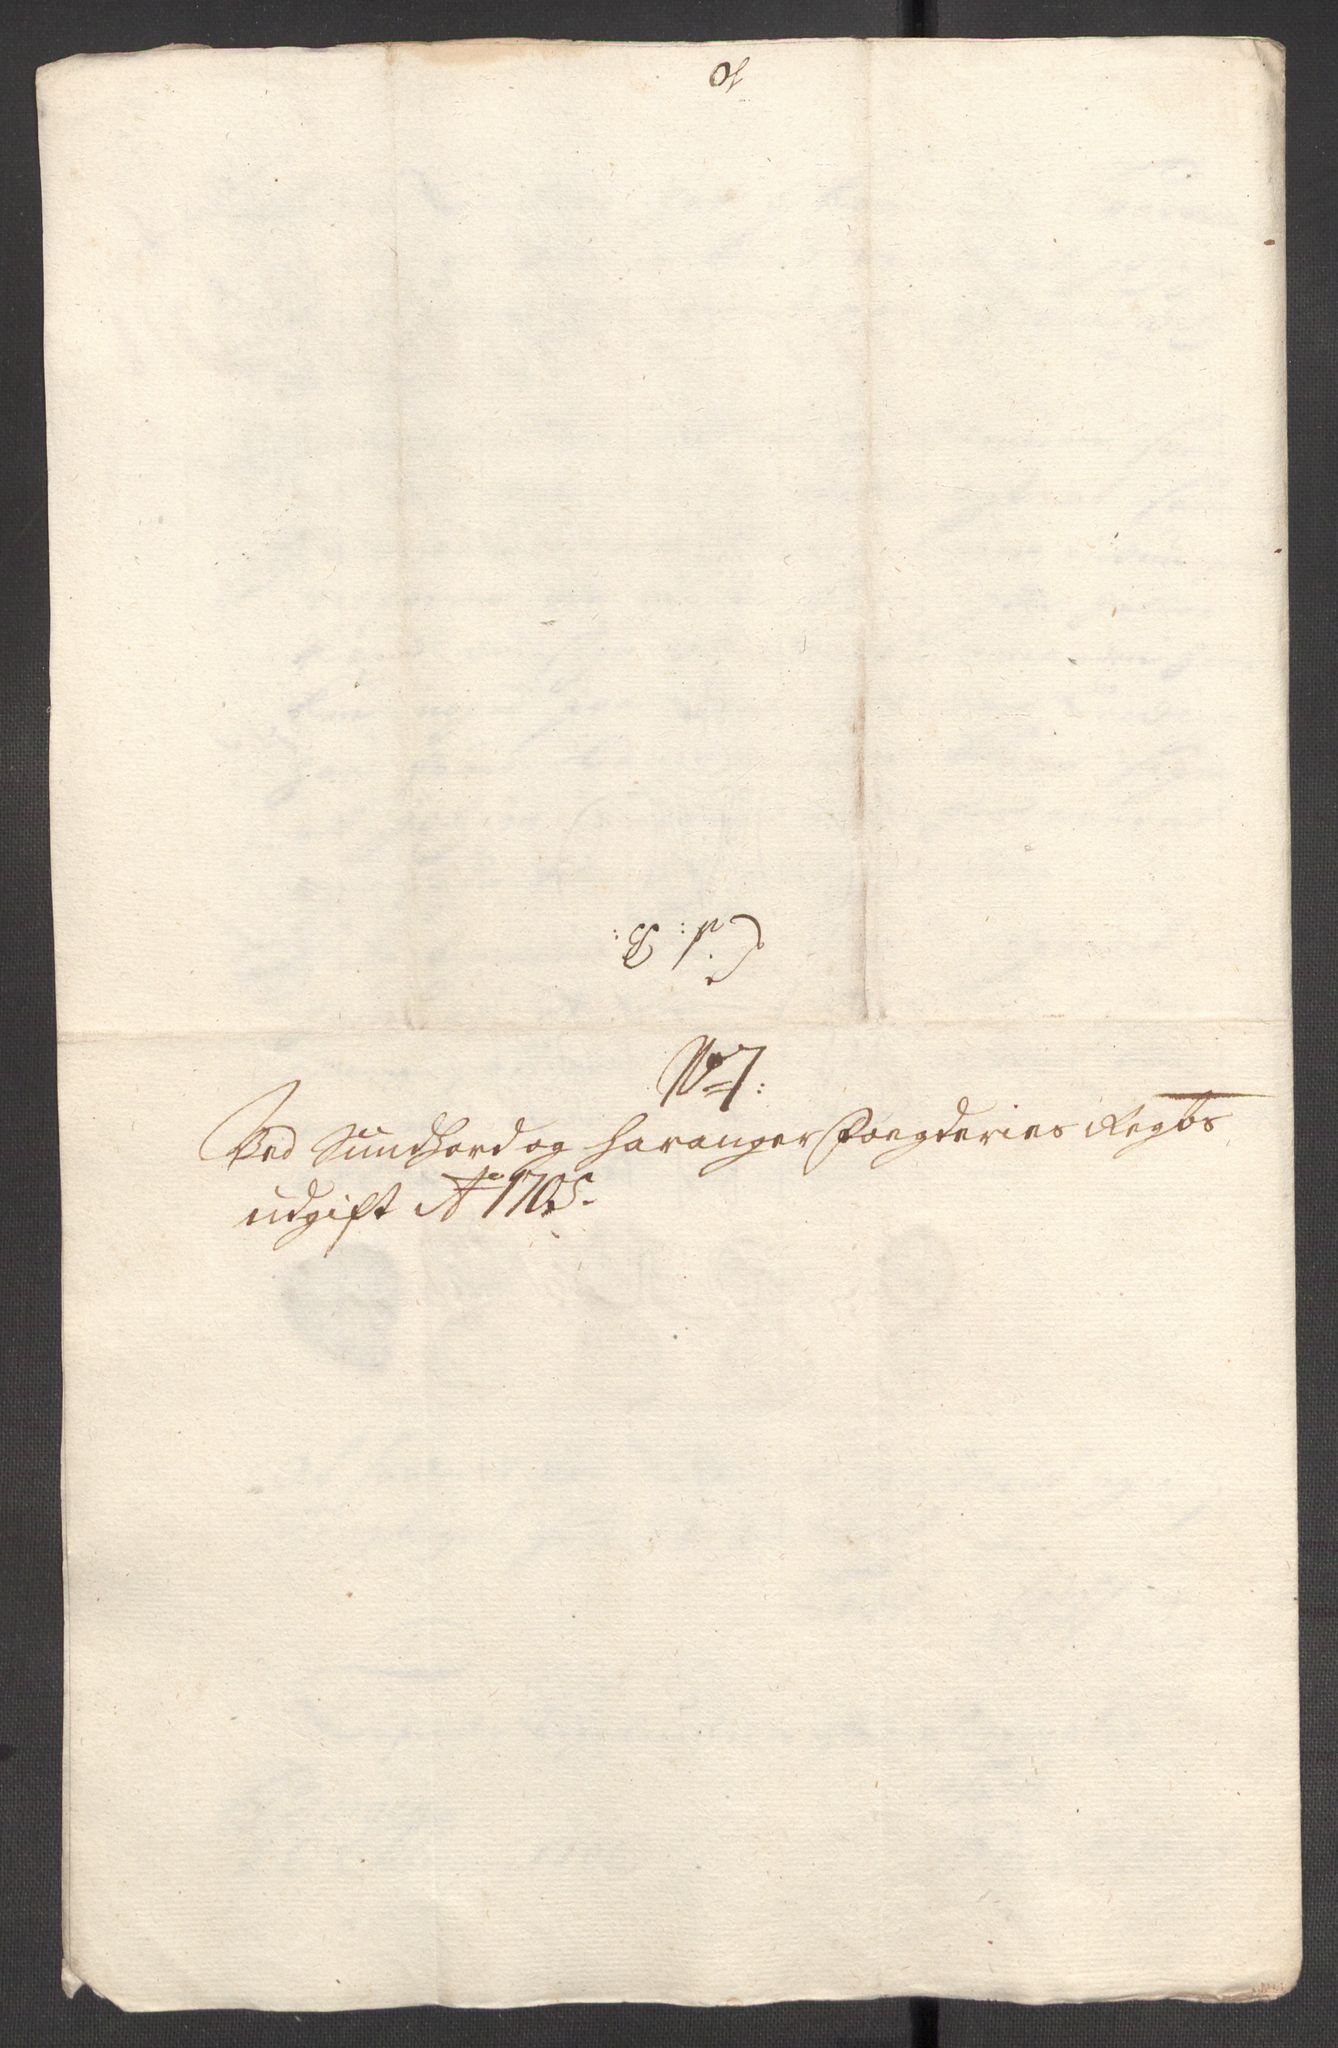 No 7:
Ved Sundhord og Haranger Foegderies Regbs
udgift Ao 1705.